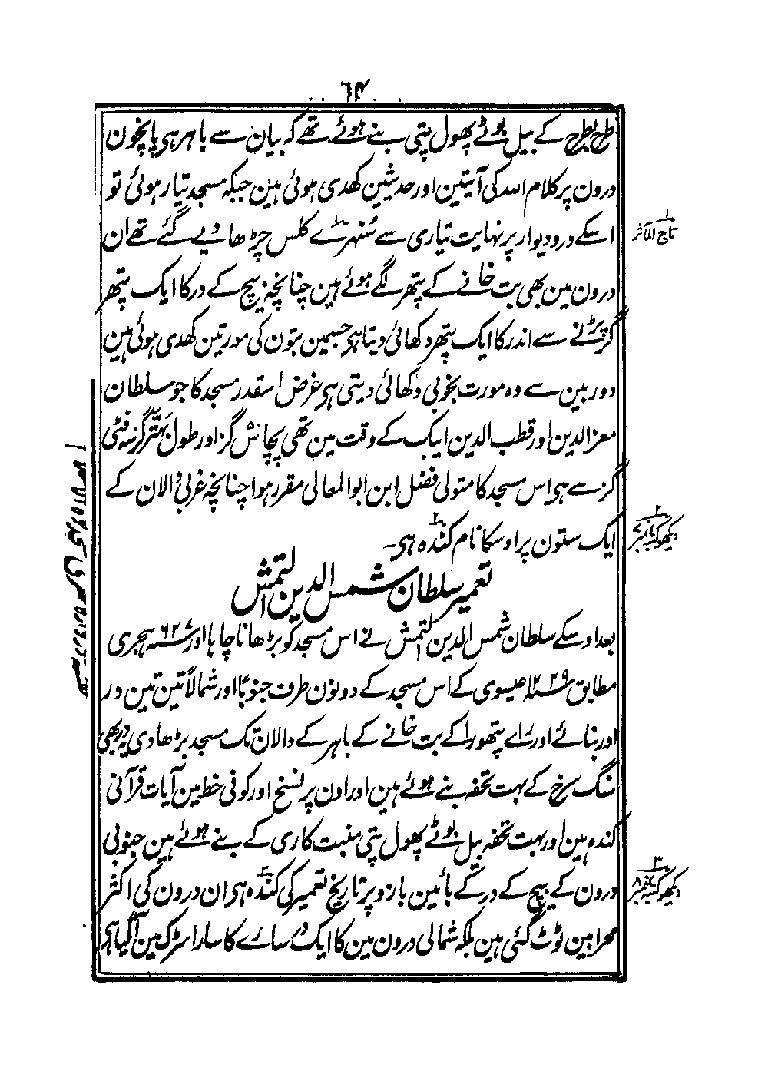 ٦٤
طرح بطرح کے بیل بوٹے پھول پتی بنے ہوئے تھے کہ بیان سے باہر ہی پانچون
درون پر کلام اللہ کی آیتین اور حدیثین کھدی ہوئی ہین جبکہ مسجد تیار ہوئی تو
اسکے در و دیوار پر نہایت تیاری سے سنہرے کلس چڑھا دیے گئے تھے ان
درون مین بھی بت خانے کے پتھر لگے ہوئے ہین چنانچہ بیچ کے در کا ایک پتھر
گر پڑنے سے اندر کا ایک پتھر دکھائی دیتا ہی جسمین بتون کی مورتین کھدی ہوئی ہین
دوربین سے وہ مورت بخوبی دکھائی دیتی ہی غرض اسقدر مسجد کا جو سلطان
معز الدین اور قطب الدین ایبک کے وقت مین تھی پچاس گز اور طول بہتر گز سہ فٹی
گز سے ہی اس مسجد کا متولی فضل ابن ابو المعالی مقرر ہوا چنانچہ غربی دالان کے
ایک ستون پر اوسکا نام کندہ ہی۔
تعمیر سلطان شمس الدین التمش
بعد اوسکے سلطان شمس الدین التمش نے اس مسجد کو بڑھانا چاہا اور ۶۲۷ سنہ ہجری
مطابق ۱۲۲۹ عیسوی کے اس مسجد کے دونون طرف جنوبًا اور شمالًا تین تین در
اور بنائے اور رائے پتھورا کے بت خانے کے باہر کے دالان تک مسجد بڑھا دی یہ در بھی
سنگ سرخ کے بہت تحفہ بنے ہوئے ہین اور اون پر نسخ اور کوفی خط مین آیات قرآنی
کندہ ہین اور بہت تحفہ بیل بوٹے پھول پتی منبت کاری کے بنے ہوئے ہین جنوبی
درون کے بیچ کے در کے بائین بازو پر تاریخ تعمیر کی کندہ ہی ان درون کی اکثر
محرابین ٹوٹ گئی ہین بلکہ شمالی درون مین کا ایک در سارے کا سارا سڑک مین آ گیا ہی
۱ تاج المآثر
۲ دیکھو کتبہ نمبر
۳ دیکھو کتبہ نمبر